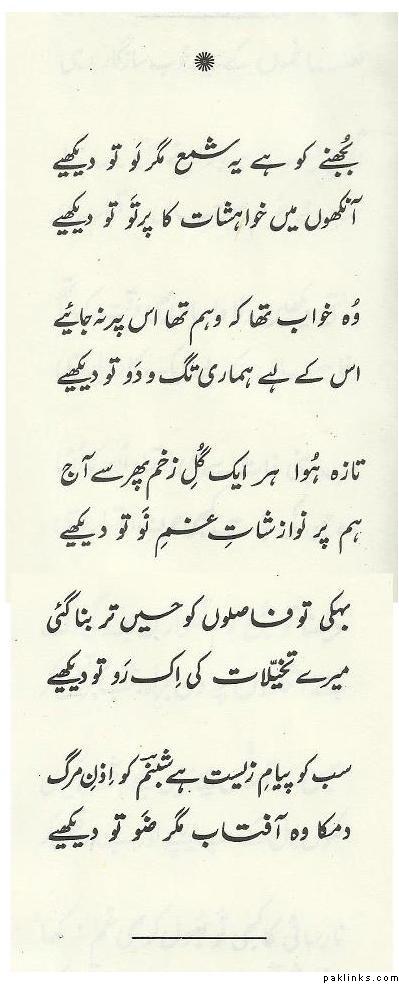 بُجھنے کو ہے یہ شمع مگر لَو تو دیکھیے
آنکھوں میں خواہشات کا پرتَو تو دیکھیے
وُہ خواب تھا کہ وہم تھا اس پیر نہ جائیے
اس کے لیے ہماری تگ و دَو تو دیکھیے
تازہ ہُوا ہر ایک گُلِ زخم پھر سے آج
ہم پر نوازشاتِ غمِ نَو تو دیکھیے
بہکی تو فاصلوں کو حسیں تر بنا گئی
میرے تخیّلات کی اِک رَو تو دیکھیے
سب کو پیامِ زیست ہے شبنمؔ کو اِذنِ مرگ
دمکا وہ آفتاب مگر ضَو تو دیکھیے
paklinks.com